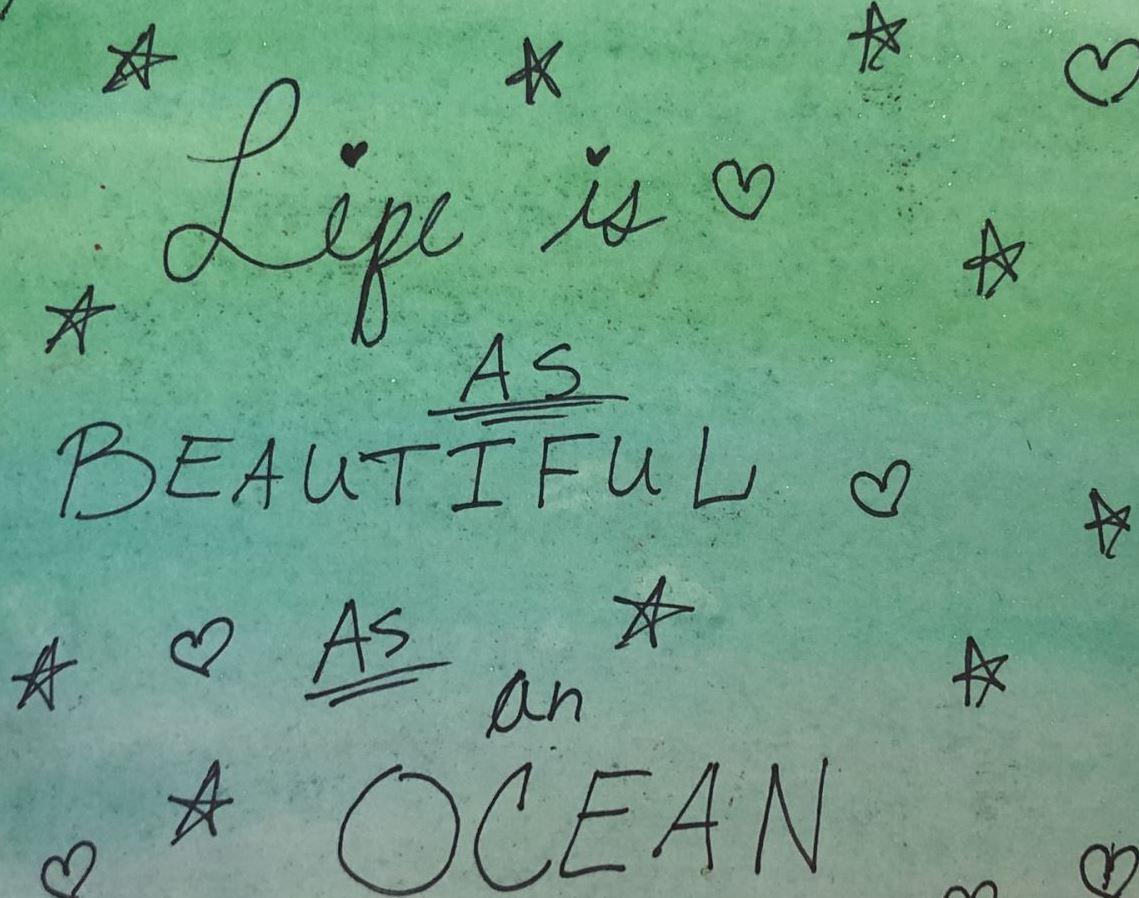 Life is
AS
BEAUTIFUL
AS
an
OCEAN